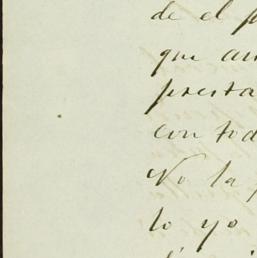 de el p
que am
presta
con tod
No la
lo yo